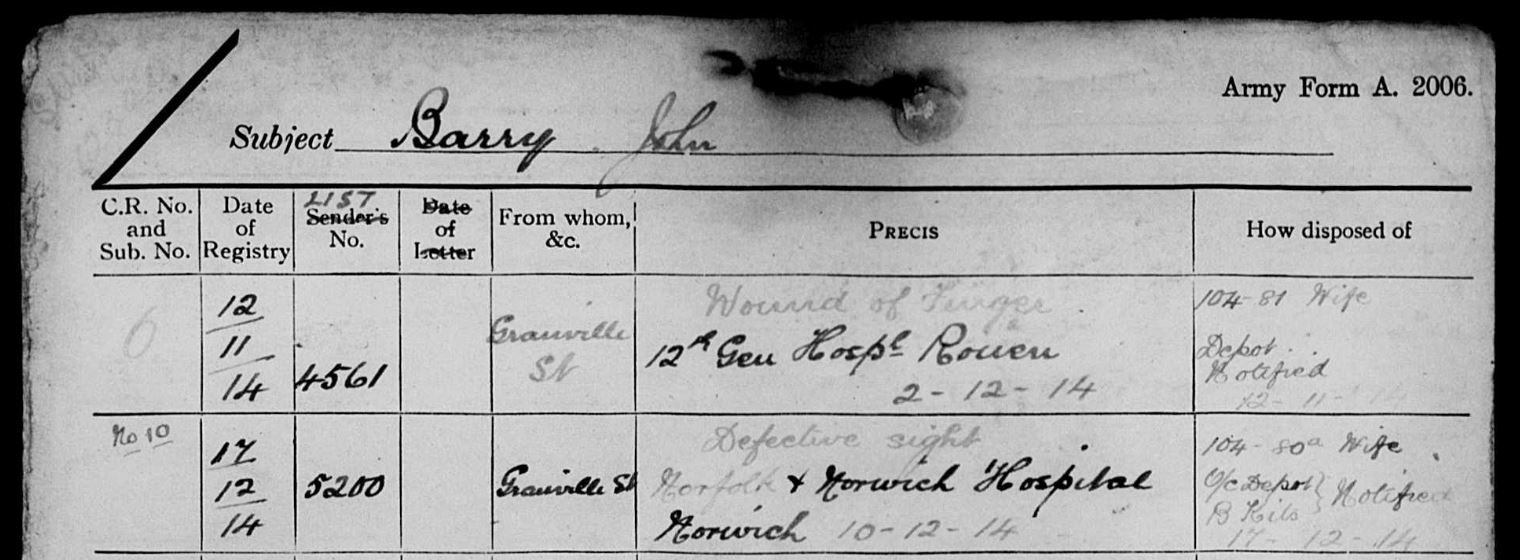 Army Form A. 2006.
Subject Barry John
C.R. No. and Sub. No.
Date of Registry
LIST
Sender's No.
Date of Letter
From whom, &c.
PRECIS
How disposed of
6
12
11
14
4561
Granville
St
Wound of Finger
12th Gen Hospl Rouen
2-12-14
104-81 Wife
Depot
Notified
12-11-14
No 10
17
12
14
5200
Granville St
Defective sight
Norfolk & Norwich Hospital
Norwich 10-12-14
104-80a Wife
O/c Depot } Notified
B Kits
17-12-14